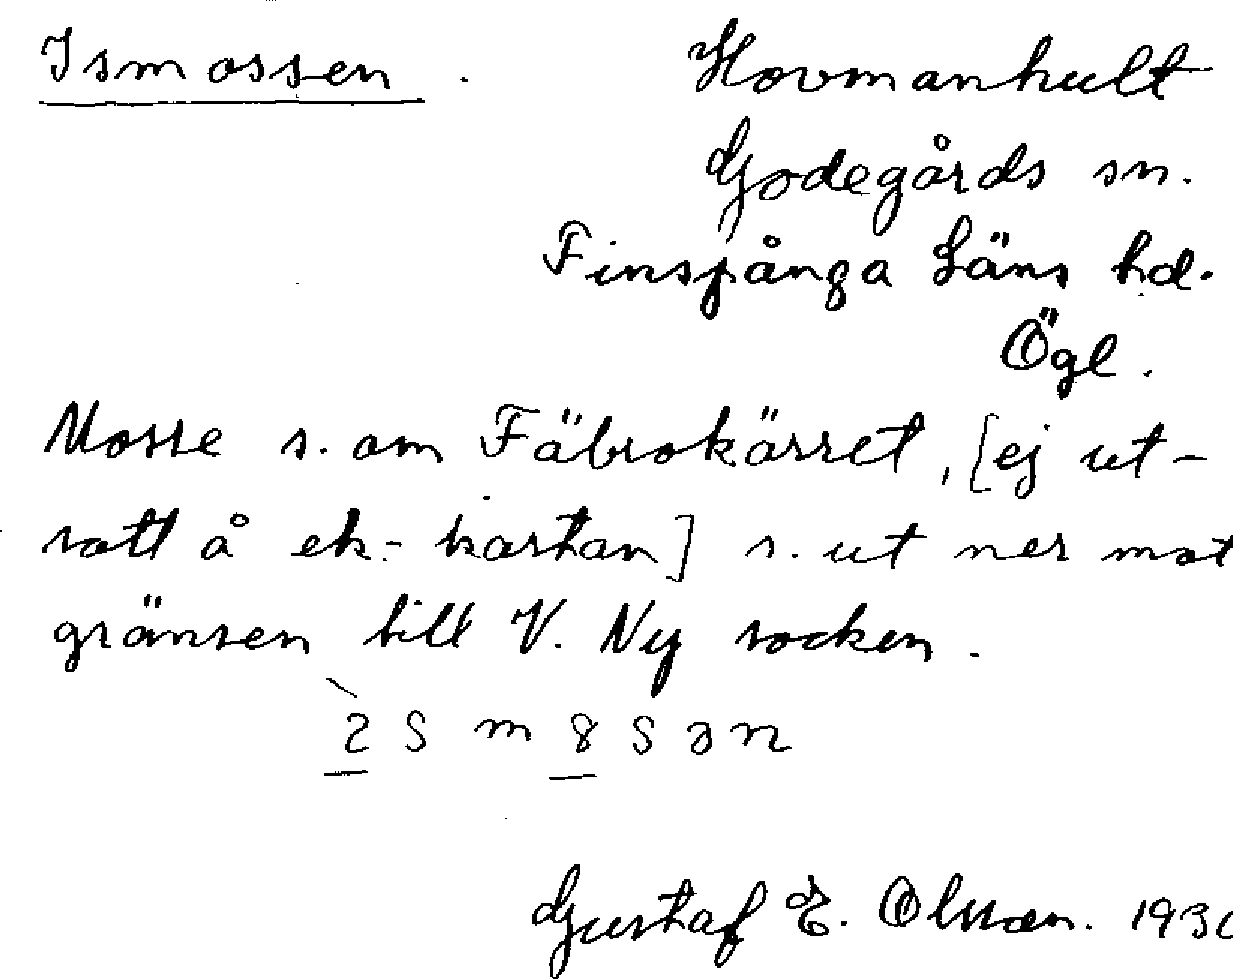 Ismossen. Hovmanhult
Godegårds sn.
Finspånga Läns hd.
Ögl.
Mosse s. om Fäbrokärret, [ej ut-
satt å ek-kartan] s. ut ner mot
gränsen till V. Ny socken.
Gustaf E. Olsson.